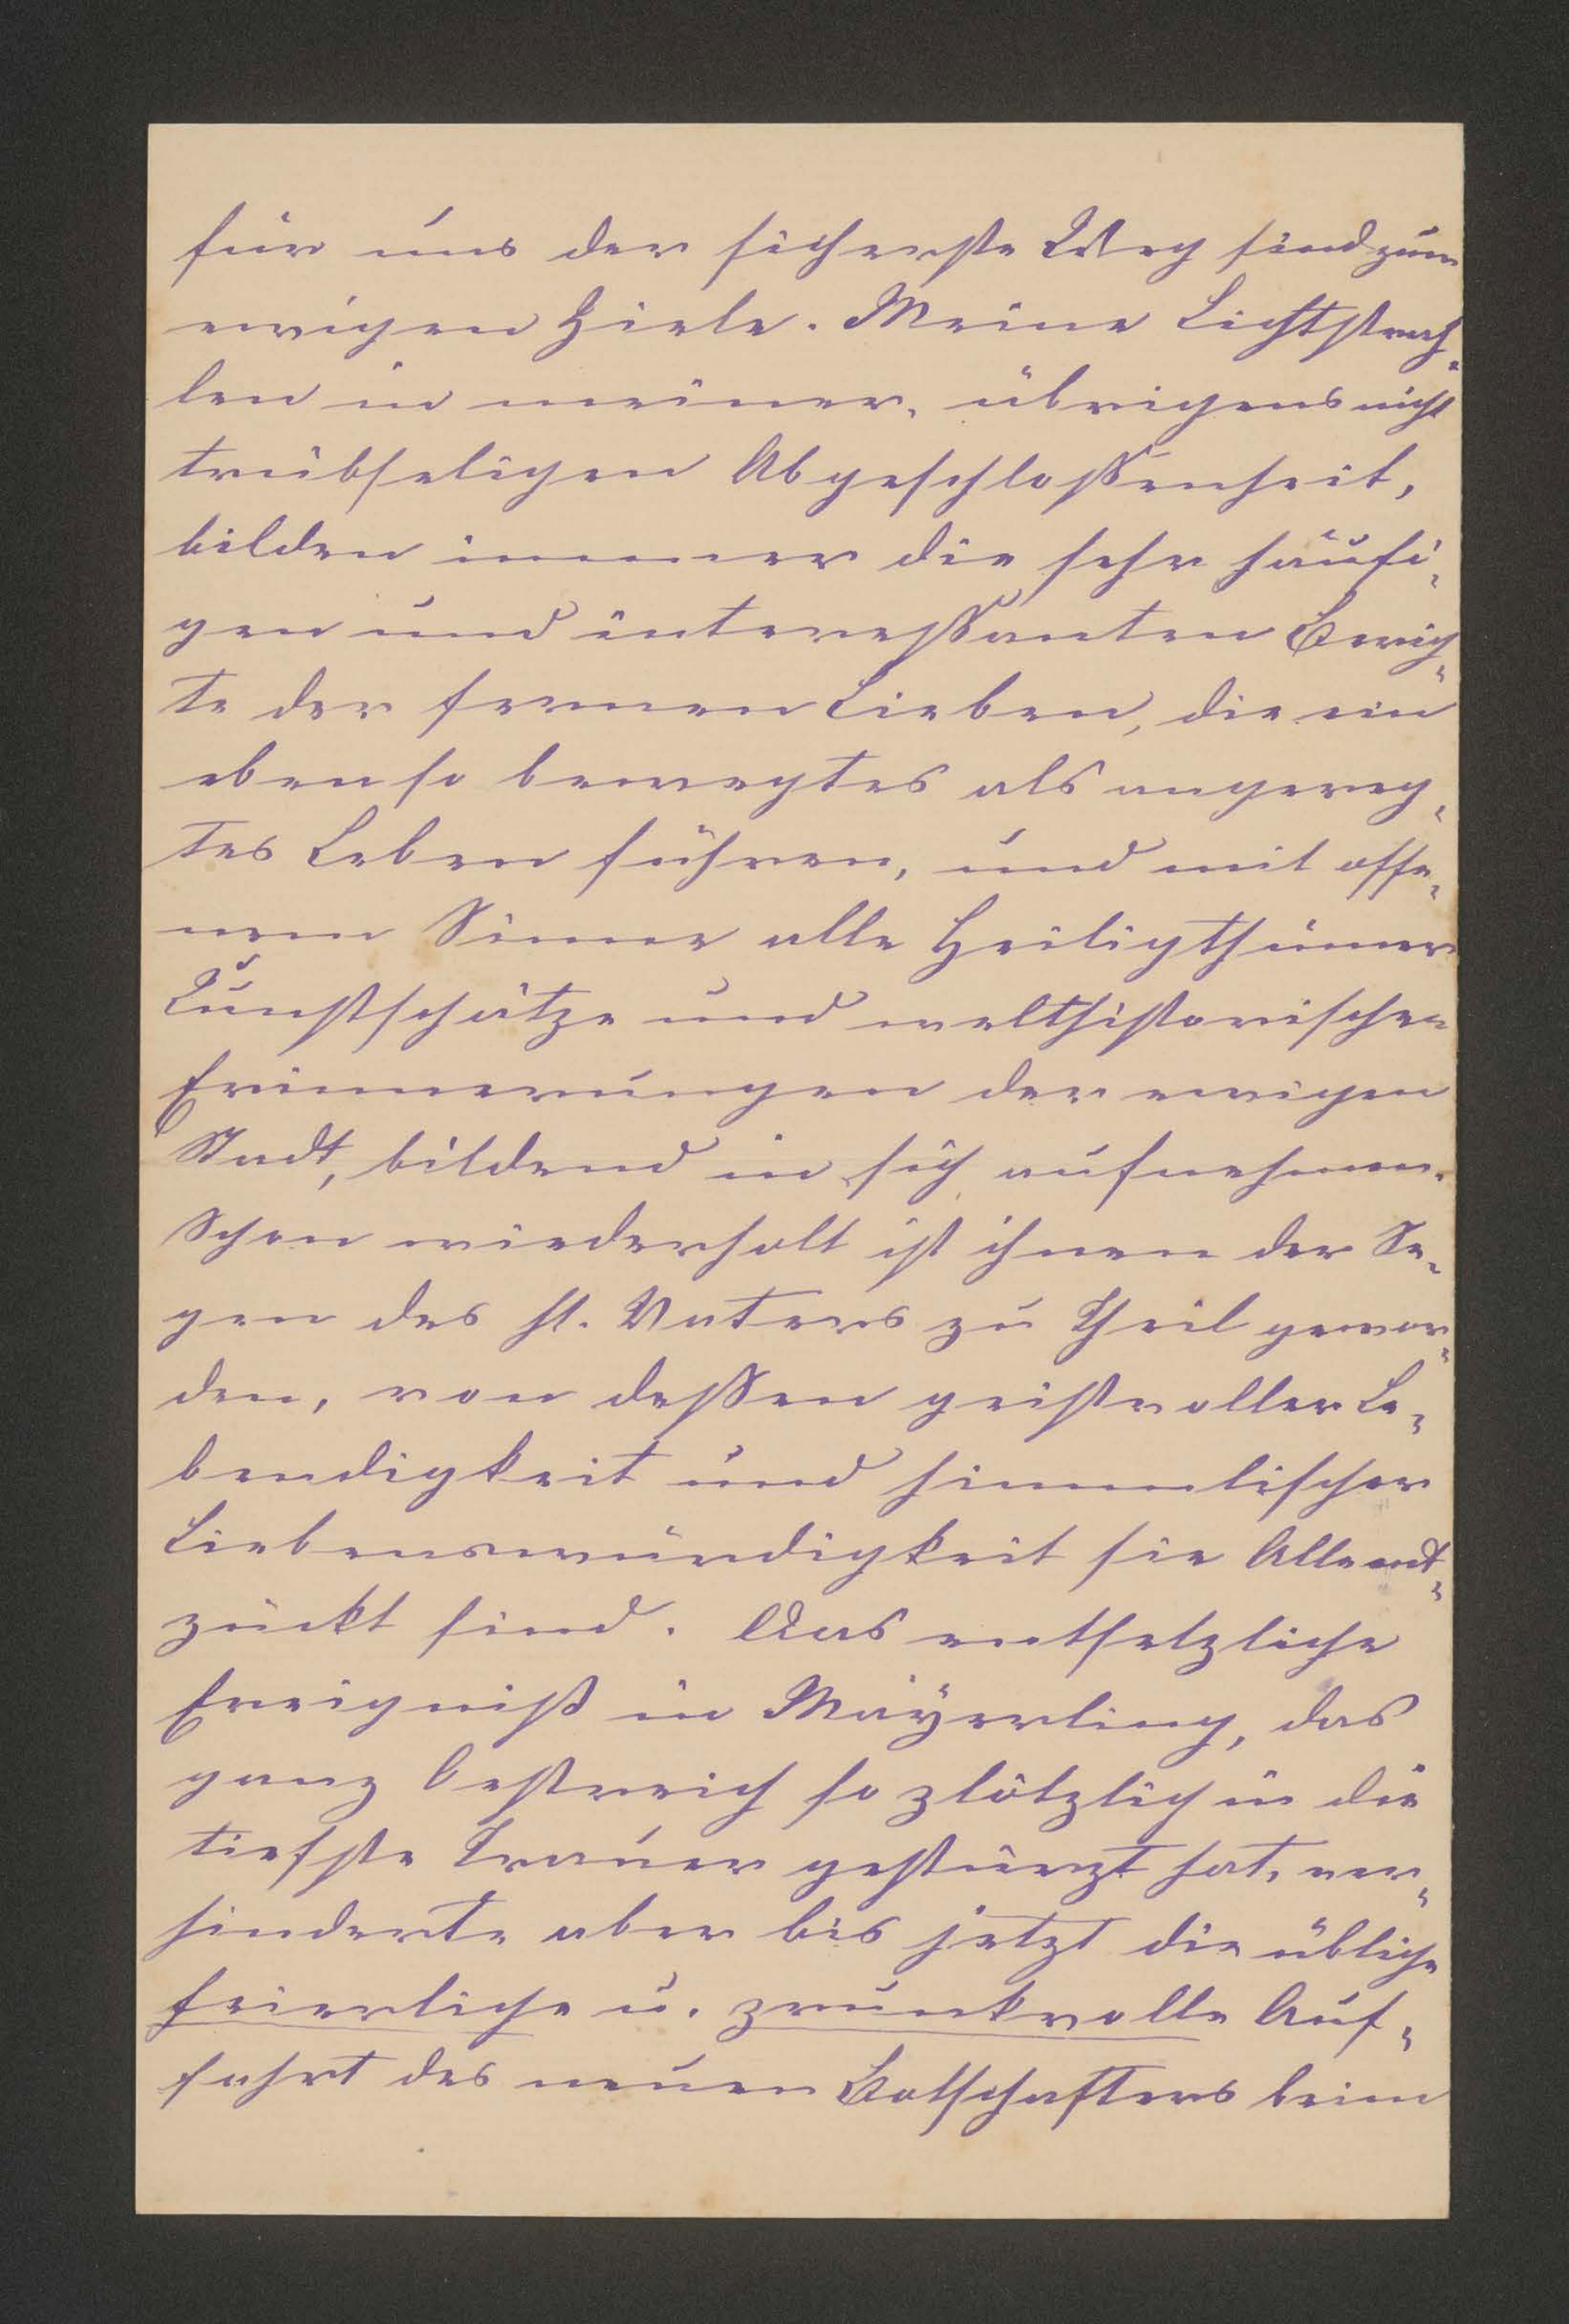 für uns der sicherste Weg sind zum
ewigen Ziele. Meine Lichtstrah-
len in meiner, übrigens nicht
trübseligen Abgeschloßenheit,
bilden immer die sehr häufi-
gen und intereßanten Berich-
te der fernen Lieben, die ein
ebenso bewegtes als angereg-
tes Leben führen, und mit offe-
nem Sinne alle Heiligthümer
Kunstschätze und welthistorischen
Erinnerungen der ewigen
Stadt, bildend in sich aufnehmen.
Schon wiederholt ist ihnen der Se-
gen des hl. Vaters zu Theil gewor-
den, von deßen geistvoller Le-
bendigkeit und himmlischer
Liebenswürdigkeit sie Alle ent-
zückt sind. Das entsetzliche
Ereigniß in Mayerling, das
ganz Oestreich so plötzlich in die
tiefste Trauer gestürzt hat, ver-
hinderte aber bis jetzt die übliche
feierliche u. prunkvolle Auf-
fahrt des neuen Botschafters beim